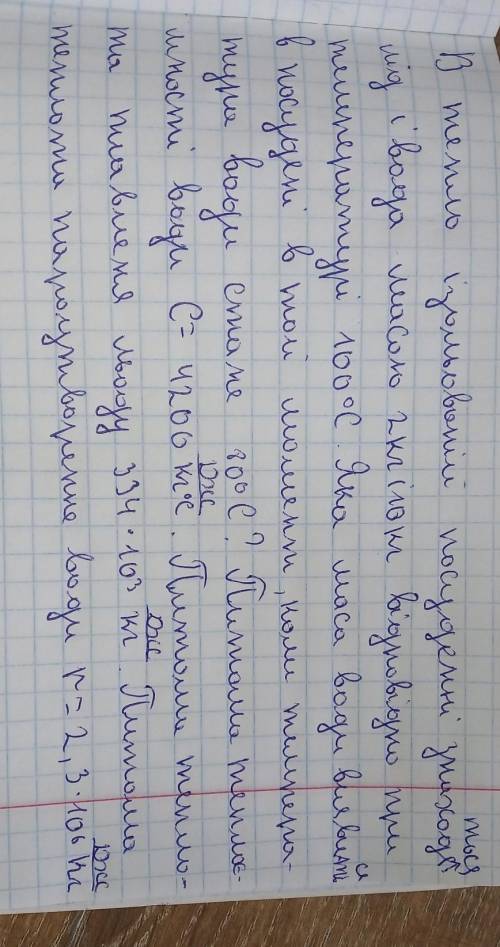 В тепло ізольовоній посуденні знаходяться
лід і вода масою 2кг і 10кг відповідно при
температурі 100°С. Яка маса води виявиться
в посудені в той моменти, коли темпера-
тура води стане 80°С? Питома тепло-
мності води С= 4200 Дж/кг°С. Питома тепло-
та плавленя льоду 334·10³ Дж/кг. Питома
теплота пароутворення води r=2,3·10⁶ Дж/кг